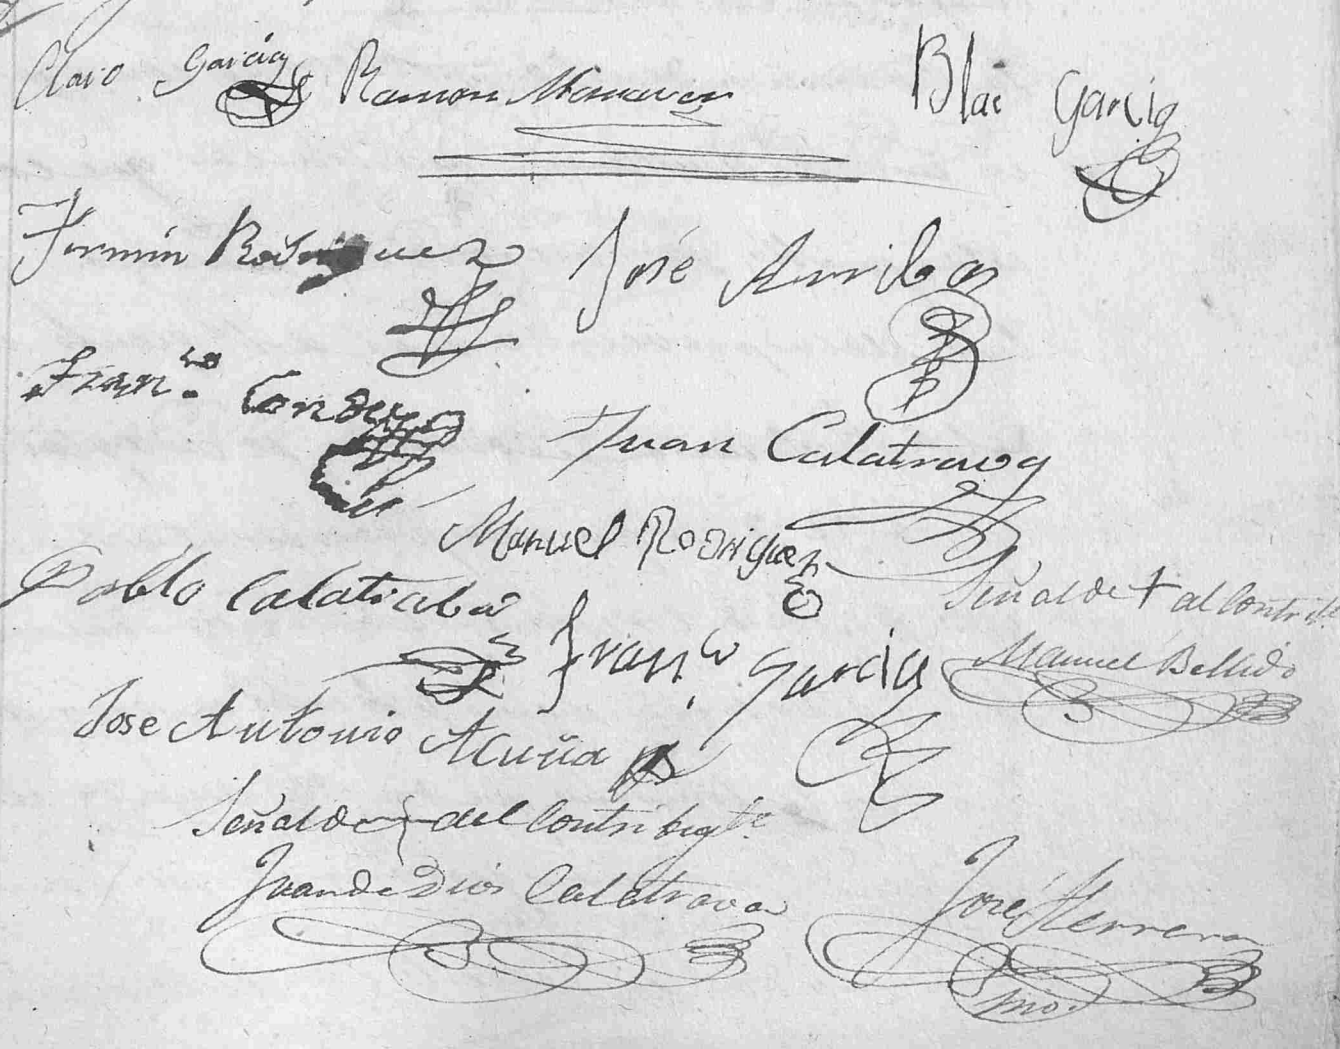 Claro Garcia Ramon Blas Garcia
Fermin Rodriguez José Arribas
Fran.co Conde Juan Calatrava
Manuel Rodriguez
Pablo Calatraba Señal de + del Contrib.te
Fran.co Garcia Manuel Bellido
Jose Antonio Acuña
Señal de + del Contribuy.te
Juan de Dios Calatrava José Herrera
Srio.